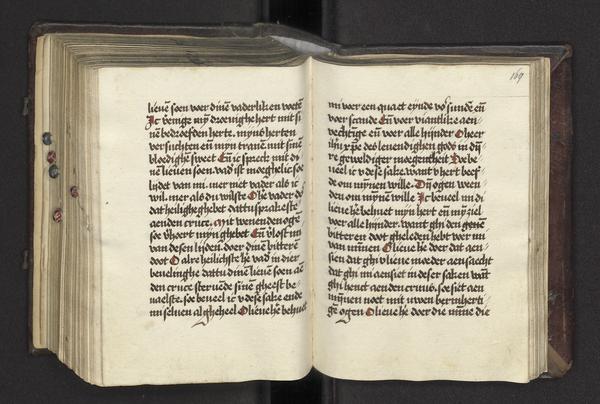 lieuē soen voer dinē vaderliken voetē
Ic vēnige mȳ droeuighe hert mit si
nē bedroefden herte. mijns herten
versuchten en̄ mijn tranē mit sinē
bloedighē sweet En̄ ic sprekē mit di
nē lieuen soen. vad ist moeghelic soe
lijdet van mi. mer niet vader als ic
wil. mer als du wilste O he vader do
dat heilighe ghebet dattu sprakeste
aenden cruce. mit wenenden ogē
soe v̄hoert mijn ghebet En̄ v̄lost mi
van desen lijden. doer dinē bitterē
doot O alre heilichste he vad in dier
beuelinghe dattu dinē lieuē soen aē
den cruce steruēde sinē gheest be
uaelste. soe beueel ic v dese sake ende
mi seluen al gheheel O lieue he behuet
169
mi voer een quaet eynde vo sunden en̄
voer scande En̄ voer viantlike aen
vechtīge en̄ voer alle hijnder O heer
ihū xp̄e des leuendighen gods in dij
re geweldiger moegentheit Ic be
ueel ic v dese sake. want v hert beef
de om mijnen wille. Dij ogen ween
den om mijnē wille Ic beueel mi di
lieue he behuet mijn hert en̄ mȳ ziel
voer alle hijnder. want ghi den
bitteren doot gheleden hebt voer mi
van minnen O lieue he doer dat aen
sien dat ghi v lieue moeder aensaecht
dat ghi mi aensiet in deser saken wāt
ghi henct aenden cruus. soe siet aen
mijnen noet mit uwen bermherti
gē ogen O lieue he doer die mīne die